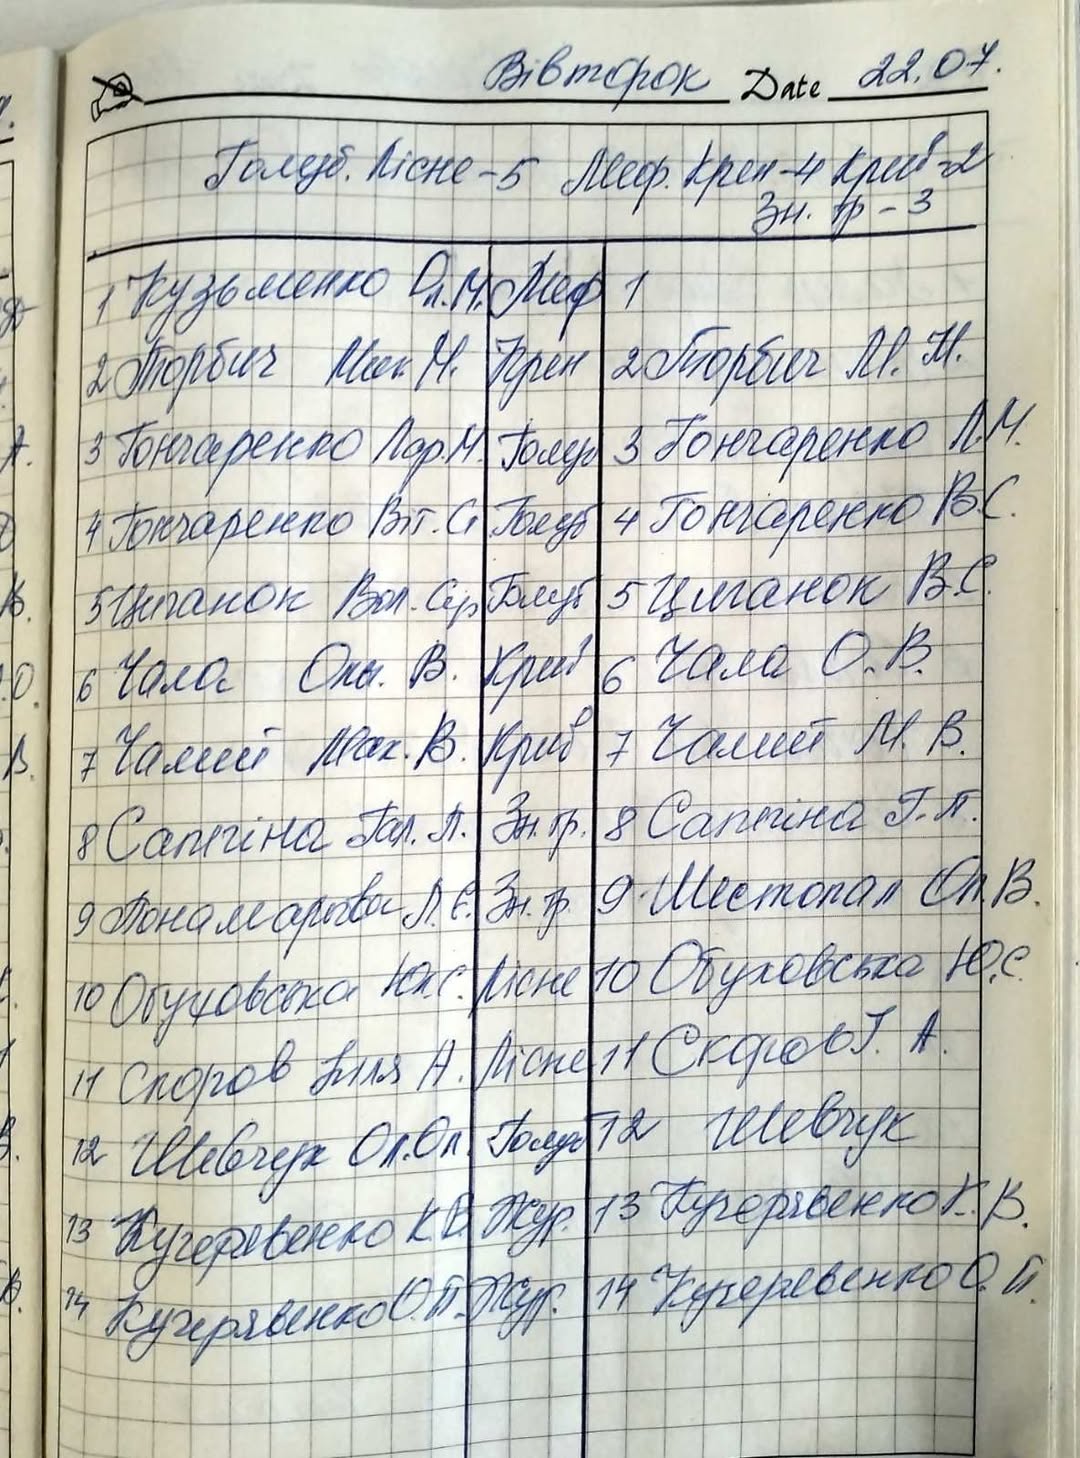 Вівторок Date 22.07.
Голуб. Лісне-5 Меф. Крен-4 Крив-2
Зн. гр-3
1 Кузьменко Ол.М. Меф 1
2 Торбич Мак М. Крен 2 Торбич М. М.
3 Гончаренко Лар.М. Голуб 3 Гончаренко Л.М.
4 Гончаренко Віт. С. Голуб 4 Гончаренко В.С.
5 Циганок Вол. Сер Голуб 5 Циганок В.С.
6 Чала В. Крив 6 Чала О.В.
7 Чалий Мак. В. Крив 7 Чалий М. В.
8 Сапгіна Гал. П. Зн. гр. 8 Сапгіна Г.П.
9 Л.Є. Зн. гр. 9 Шестопал Ол.В.
10 Обуховська Юл.С. Лісне 10 Обуховська Ю.С.
11 Скоров Ілля А. Лісне 11 Скоров І. А.
12 Шевчук Ол.Ол. Голуб 12 Шевчук
13 Кучерявенко К.В. Жур. 13 Кучерявенко К. В.
14 Кучерявенко О.П. Жур. 14 Кучеревенко О. П.